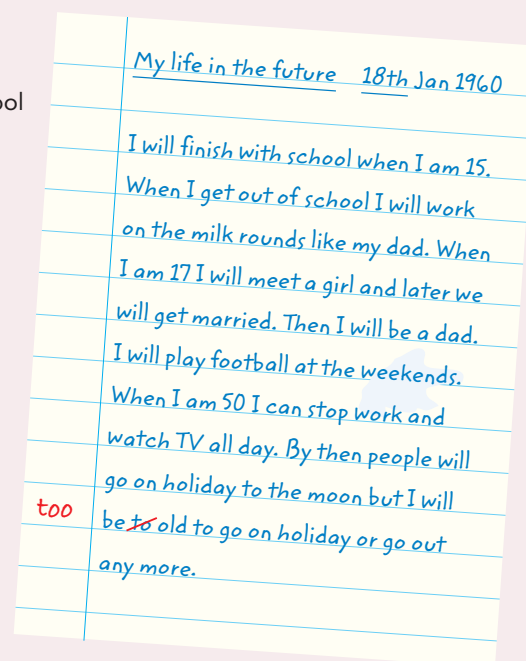 ool
My life in the future 18th Jan 1960
I will finish with school when I am 15.
When I get out of school I will work
on the milk rounds like my dad. When
I am 17 I will meet a girl and later we
will get married. Then I will be a dad.
I will play football at the weekends.
When I am 50 I can stop work and
watch TV all day. By then people will
go on holiday to the moon but I will
too
be to old to go on holiday or go out
any more.